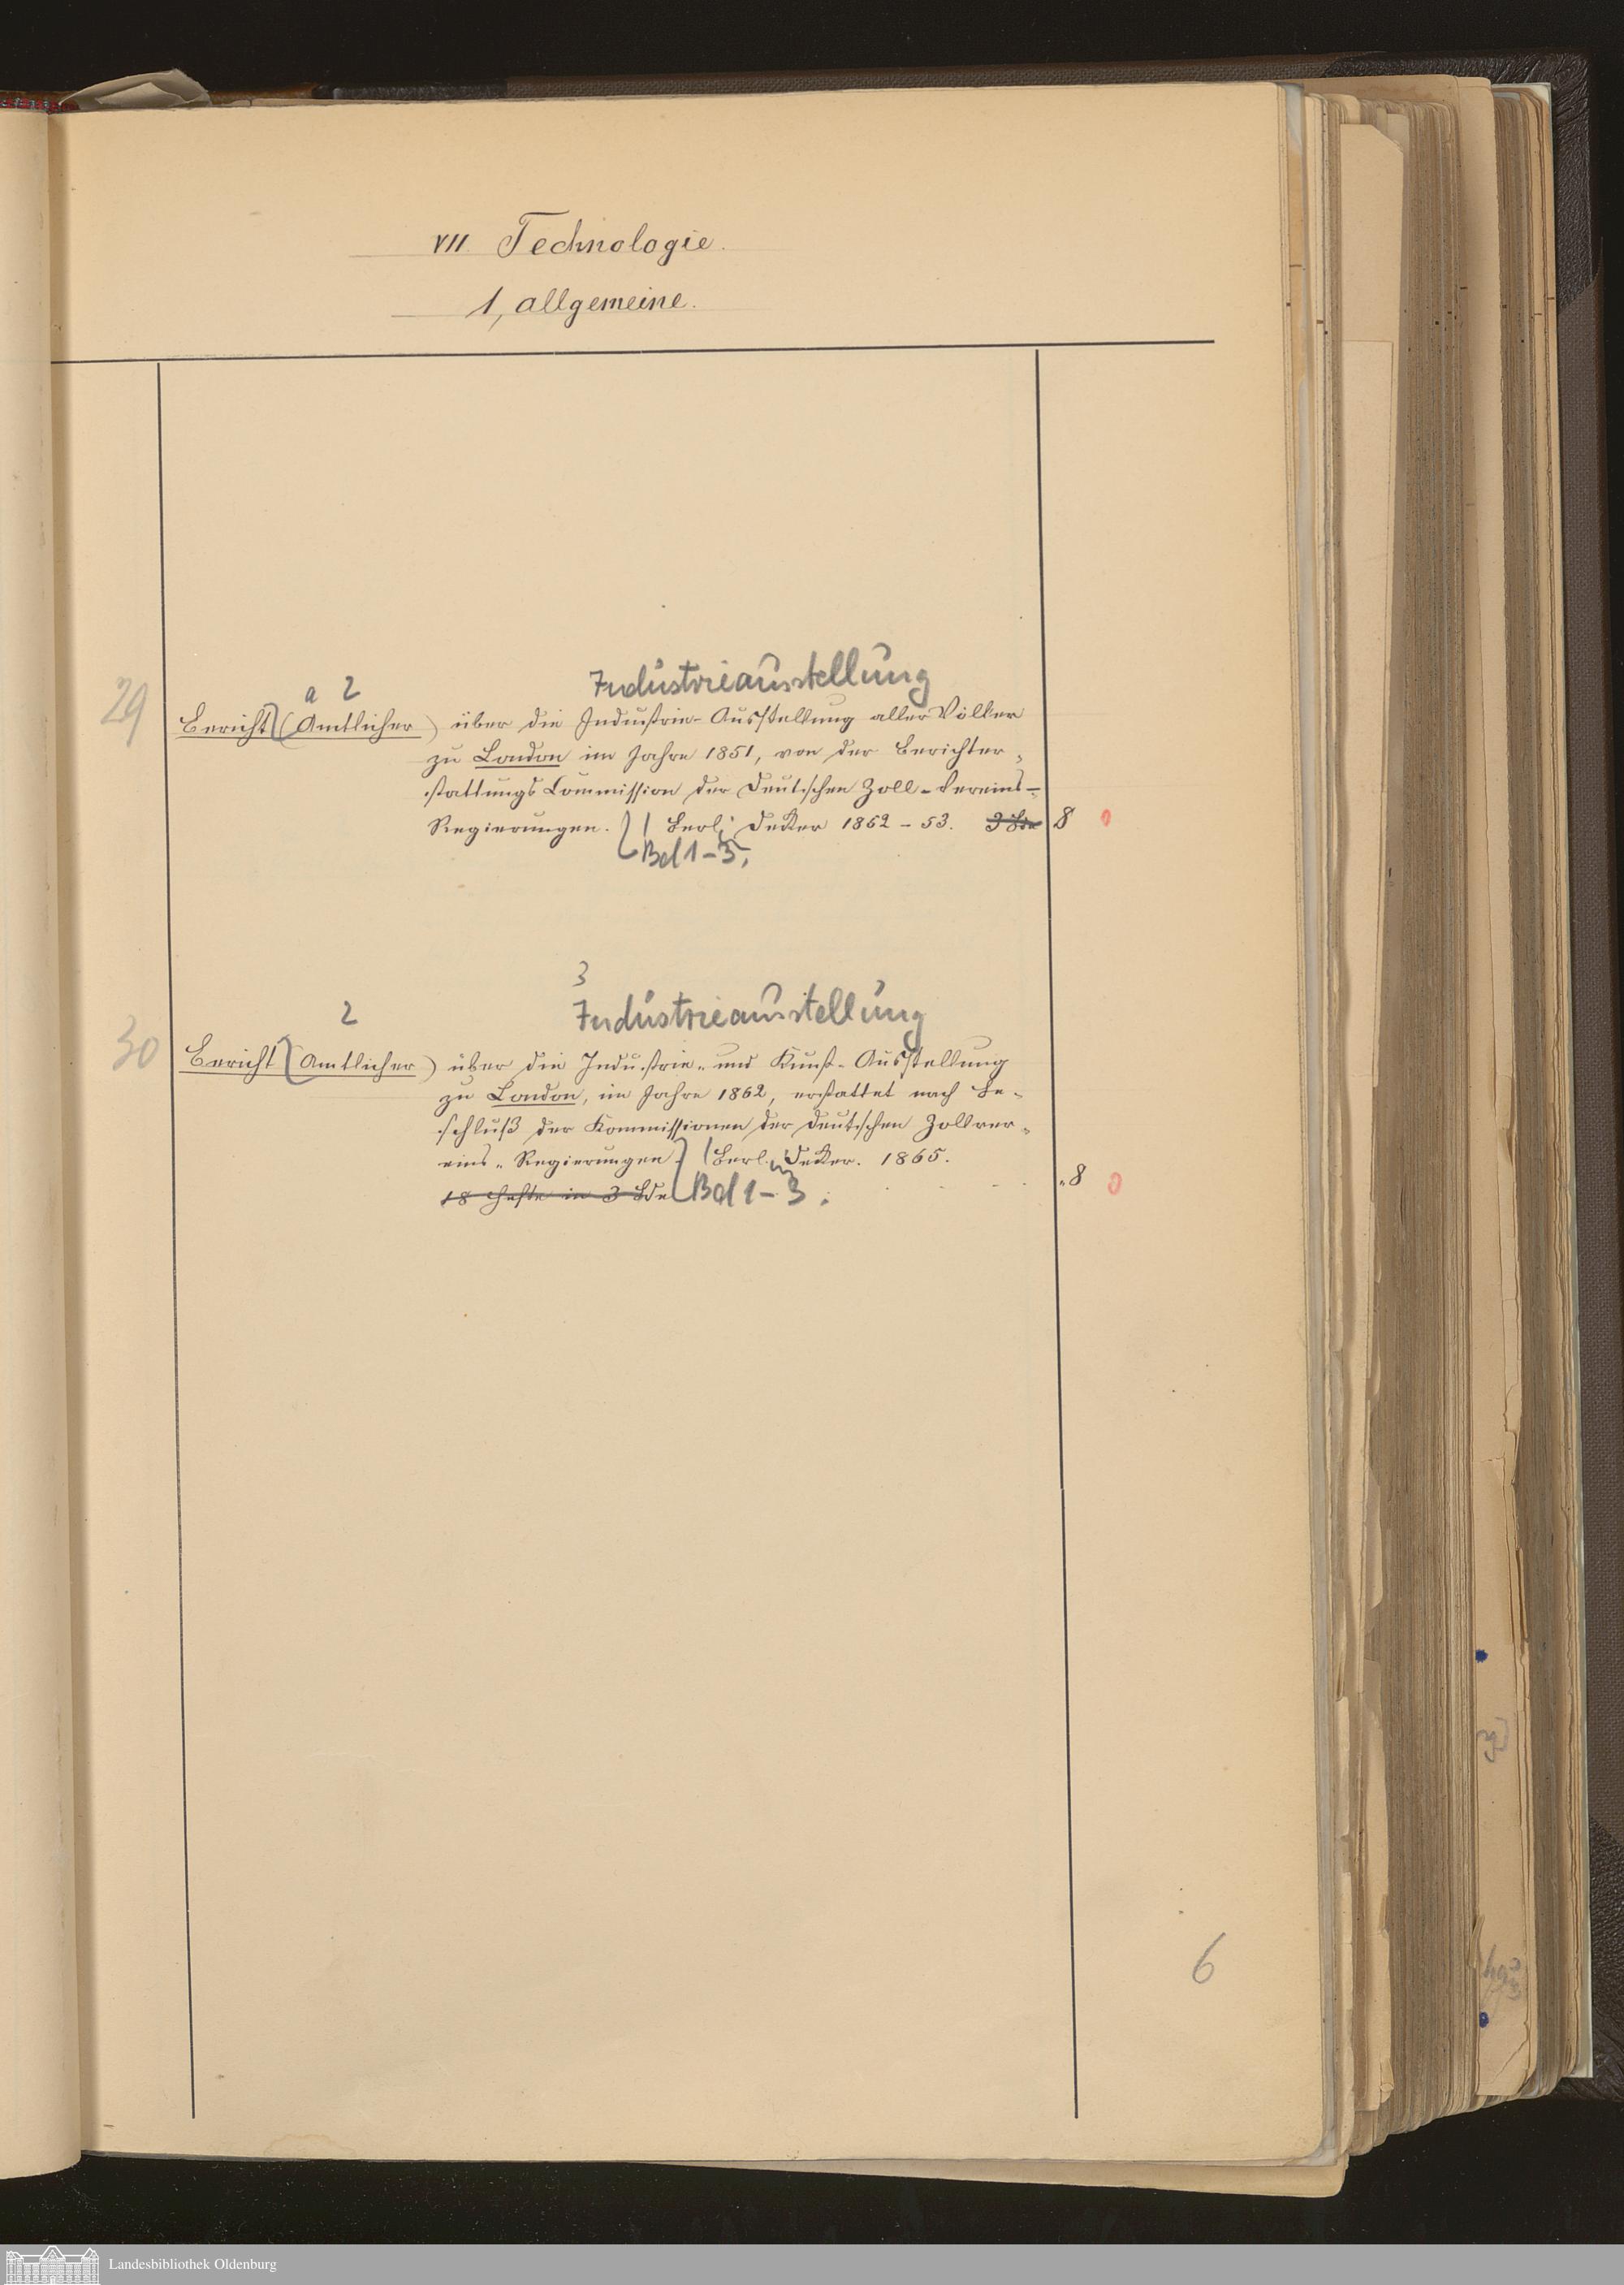 VII Technologie.
1, allgemeine.
Industrieausstellung
29
a 2
Bericht (Amtlicher) über die Industrie-Ausstellung aller Völker
zu London im Jahre 1851, von der Berichter-
stattungs Commission der Deutschen Zoll-Vereins-
Regierungen. | Berl. Decker 1852-53. 3 Bde 8 0
Bd 1-3.
3
Industrieausstellung
2
30
Bericht (Amtlicher) über die Industrie- und Kunst-Ausstellung
zu London, im Jahre 1862, erstattet nach Be-
schluß der Kommissionen der Deutschen Zollver-
eins-Regierungen. | Berl. Decker. 1865.
18 Hefte in 3 Bde Bd 1-3. 8 0
6
Landesbibliothek Oldenburg